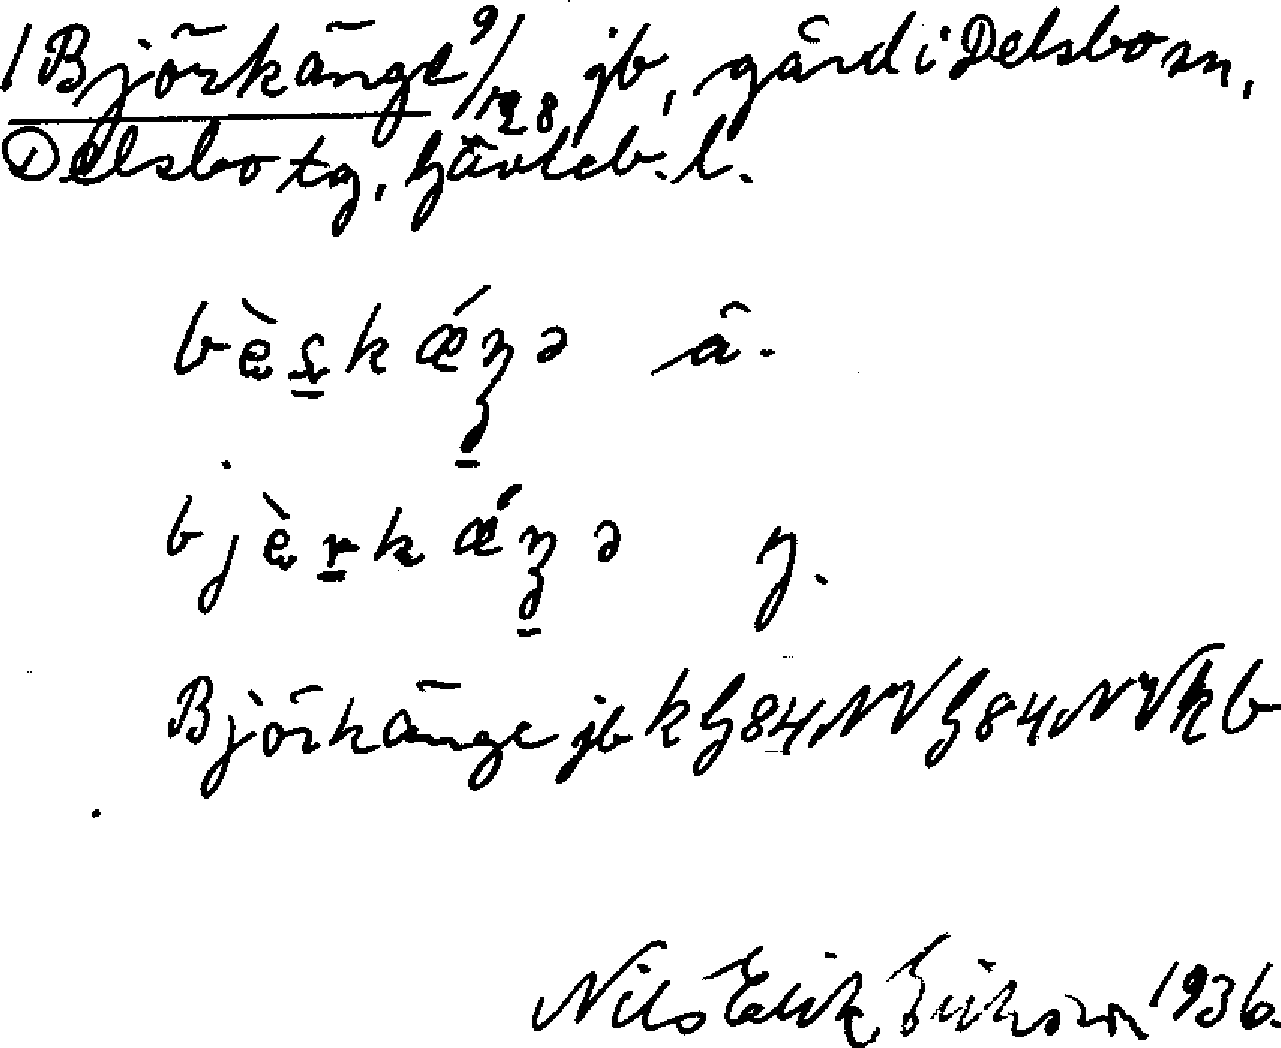 1 Björkänge 9/128 jb, gård i Delsbo sn,
Delsbo tg, Gävleb. l.
bè̞r̠kǽŋ̠ə ä.
bjè̞r̠kǽŋ̠ə y.
Björkänge jbk G84NV G84NV kb
Nils Erik Eriksson 1936.